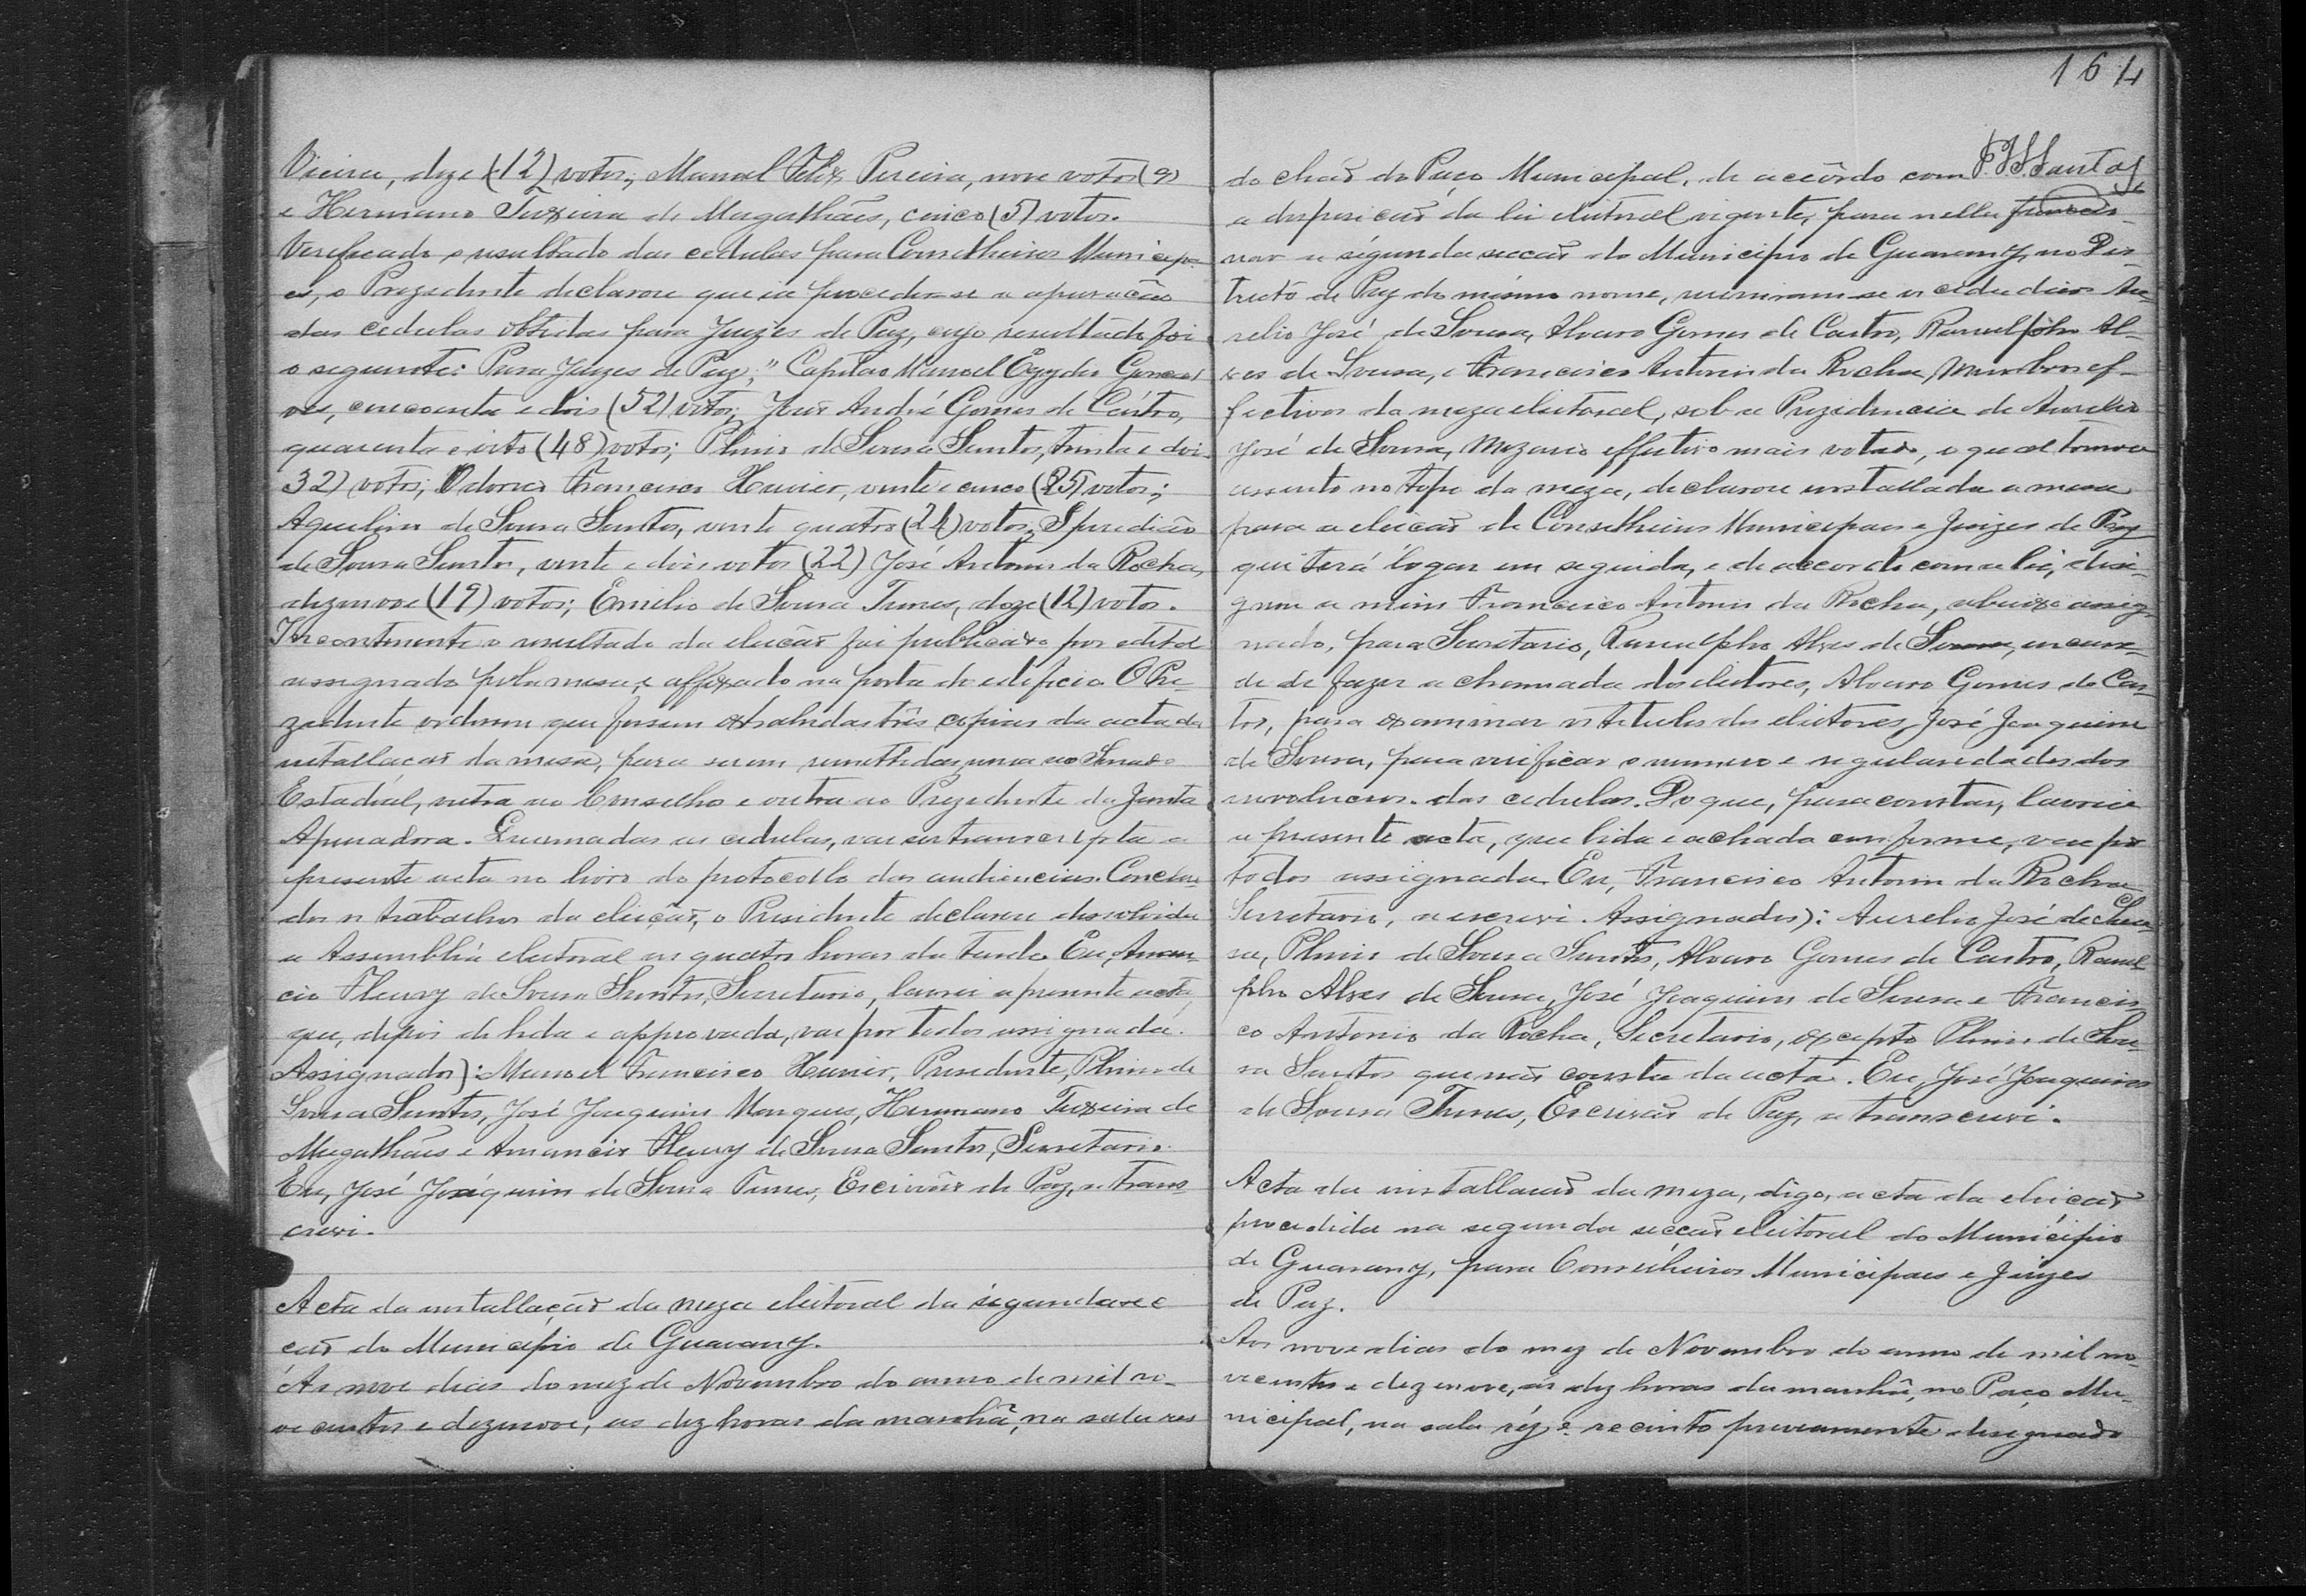 Vieira, doze (12) votos; Manoel Felix Pereira, nove votos (9)
e Hermano Teixeira de Magalhães, cinco (5) votos.
Verificado o resultado das cedulas para Conselheiros Municipa-
es, o Prezidente declarou que ia proceder-se a apuração
das cedulas obtidas para Juizes de Paz, cujo resultado foi
o seguinte: Para Juizes de Paz; " Capitão Manoel Egydio Gonçal
ves, cincoenta e dois (52) votos; José André Gomes de Castro,
quarenta e oito (48) votos; Plinio de Sousa Santos, trinta e dois
32) votos; Odorico Francisco Xavier, vinte e cinco (25) votos;
Aquilino de Sousa Santos, vinte quatro (24) votos; Speridião
de Sousa Santos, vinte e dois votos (22) José Antonio da Rocha,
dezenove (19) votos; Emilio de Sousa Tunes, doze (12) votos.
Incontinente o resultado da eleição foi publicado por edital
assignado pela mesa, e affixado na porta do edificio. O Pre-
zidente ordenou que fossem extrahidas três copias da acta da
installação da mesa, para serem remettidas, uma ao Senado
Estadual, outra ao Conselho e outra ao Prezidente da Junta
Apuradora. Queimadas as cedulas, vai ser transcripta a
presente acta no livro do protocollo das audiencias. Conclui-
dos os trabalhos da eleição, o Presidente declarou dissolvida
a Assembléa eleitoral as quatro horas da tarde. Eu, Aman-
cio Fleury de Sousa Santos, Secretario, lavrei a presente acta,
que, depois de lida e approvada, vae por todos assignada.
Assignados): Manoel Francisco Xavier, Presidente, Plinio de
Sousa Santos, José Joaquim Marques, Hermano Teixeira de
Magalhães e Amancio Fleury de Sousa Santos, Secretario.
Eu, José Joaquim de Sousa Tunes, Escrivão de Paz, a trans-
crevi.
Acta da installação da meza eleitoral da segunda sec
ção do Municipio de Guarany.
Aos nove dias do mez de Novembro do anno de mil no-
vecentos e dezenove, as dez horas da manhã, na sala res
164
F. S. Santos
do chão do Paço Municipal, de accôrdo com
a disposição da lei eleitoral vigente, para nella funccio-
nar a segunda secção do Municipio de Guarany, no Dis-
tricto de Paz do mesmo nome, reuniram-se os cidadãos Au-
relio José de Sousa, Alvaro Gomes de Castro, Ranulpho Al-
ves de Sousa, e Francisco Antonio da Rocha, membros ef-
fectivos da meza eleitoral, sob a Prezidencia de Aurelio
José de Sousa, Mezario effectivo mais votado, o qual tomou
assento no topo da meza, declarou installada a mesa
para a eleição de Conselheiros Municipaes e Juizes de Paz
que terá logar em seguida, e de accordo com a lei, desi-
gnou a mim Francisco Antonio da Rocha, abaixo assig-
nado, para Secretario, Ranulpho Alves de Sousa,
de de fazer a chamada dos eleitores, Alvaro Gomes de Cas
tro, para examinar os titulos dos eleitores, José Joaquim
de Sousa, para verificar o numero e regularidades dos
involucros das cedulas. Do que, para constar, lavrei
a presente acta, que lida e achada conforme, vae por
todos assignada. Eu, Francisco Antonio da Rocha
Secretario, a escrevi. Assignados): Aurelio José de Sou
sa, Plinio de Sousa Santos, Alvaro Gomes de Castro, Ranul
pho Alves de Sousa, José Joaquim de Sousa e Francis
co Antonio da Rocha, Secretario, excepto Plinio de Sou-
sa Santos que não consta da acta. Eu, José Joaquim
de Sousa Tunes, Escrivão de Paz, a transcrevi.
Acta da installação da meza, digo, acta da eleição
procedida na segunda secção eleitoral do Municipio
de Guarany, para Conselheiros Municipaes e Juizes
de Paz.
Aos nove dias do mez de Novembro do anno de mil no-
vecentos e dezenove, ás dez horas da manhã, no Paço Mu-
nicipal, na sala réz e recinto previamente designado